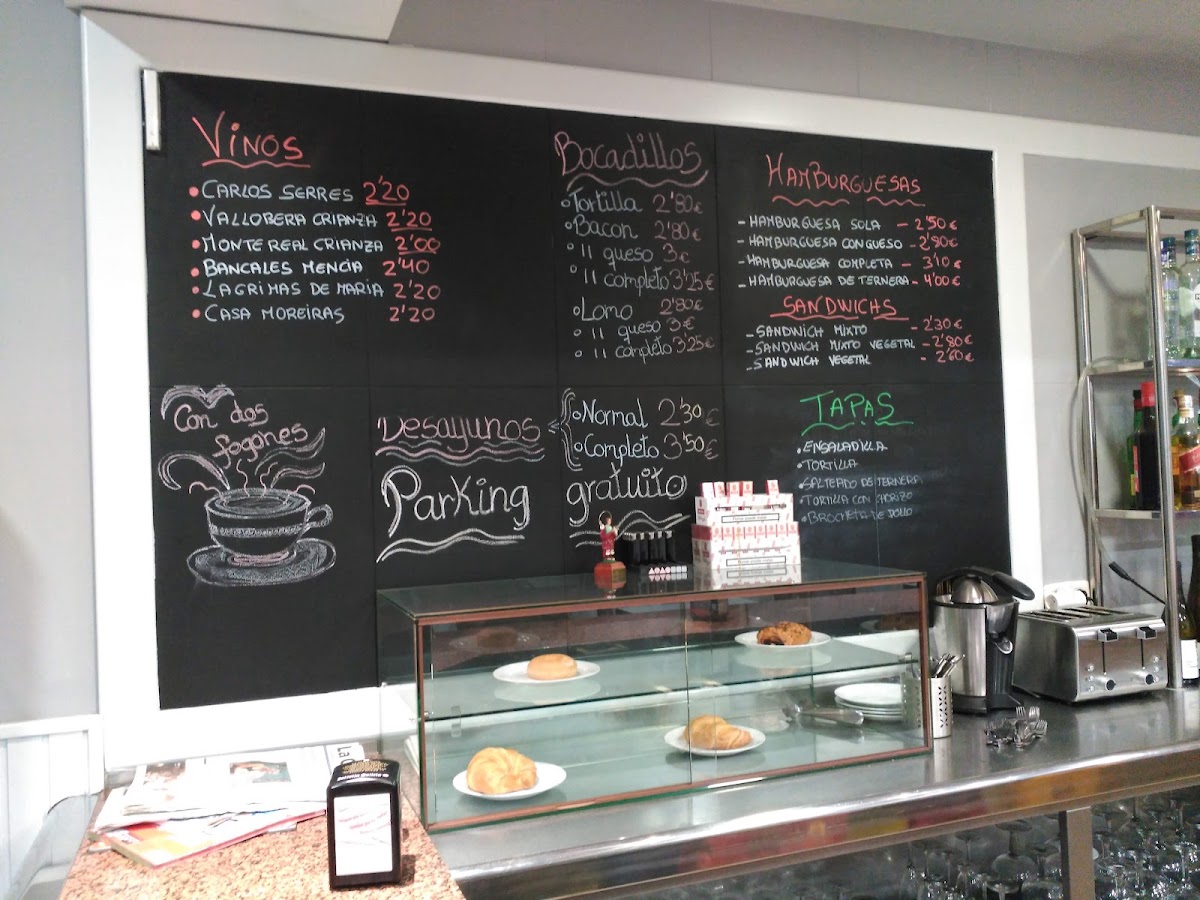 VINOS
• CARLOS SERRES 2'20
• VALLOBERA CRIANZA 2'20
• MONTE REAL CRIANZA 2'00
• BANCALES MENCIA 2'40
• LAGRIMAS DE MARIA 2'20
• CASA MOREIRAS 2'20
Bocadillos
Tortilla 2'80€
Bacon 2'80€
" queso 3€
" completo 3'25€
Lomo 2'80€
" queso 3€
" completo 3'25€
HAMBURGUESAS
- HAMBURGUESA SOLA - 2'50€
- HAMBURGUESA CON QUESO - 2'80€
- HAMBURGUESA COMPLETA - 3'10€
- HAMBURGUESA DE TERNERA - 4'00€
SANDWICHS
- SANDWICH MIXTO - 2'30€
- SANDWICH MIXTO VEGETAL - 2'80€
- SANDWICH VEGETAL - 2'60€
Con dos
fogones
Desayunos
Normal 2'30€
Completo 3'50€
Parking gratuito
TAPAS
• ENSALADILLA
• TORTILLA
• SALTEADO DE TERNERA
• TORTILLA CON CHORIZO
• BROCHETA DE POLLO